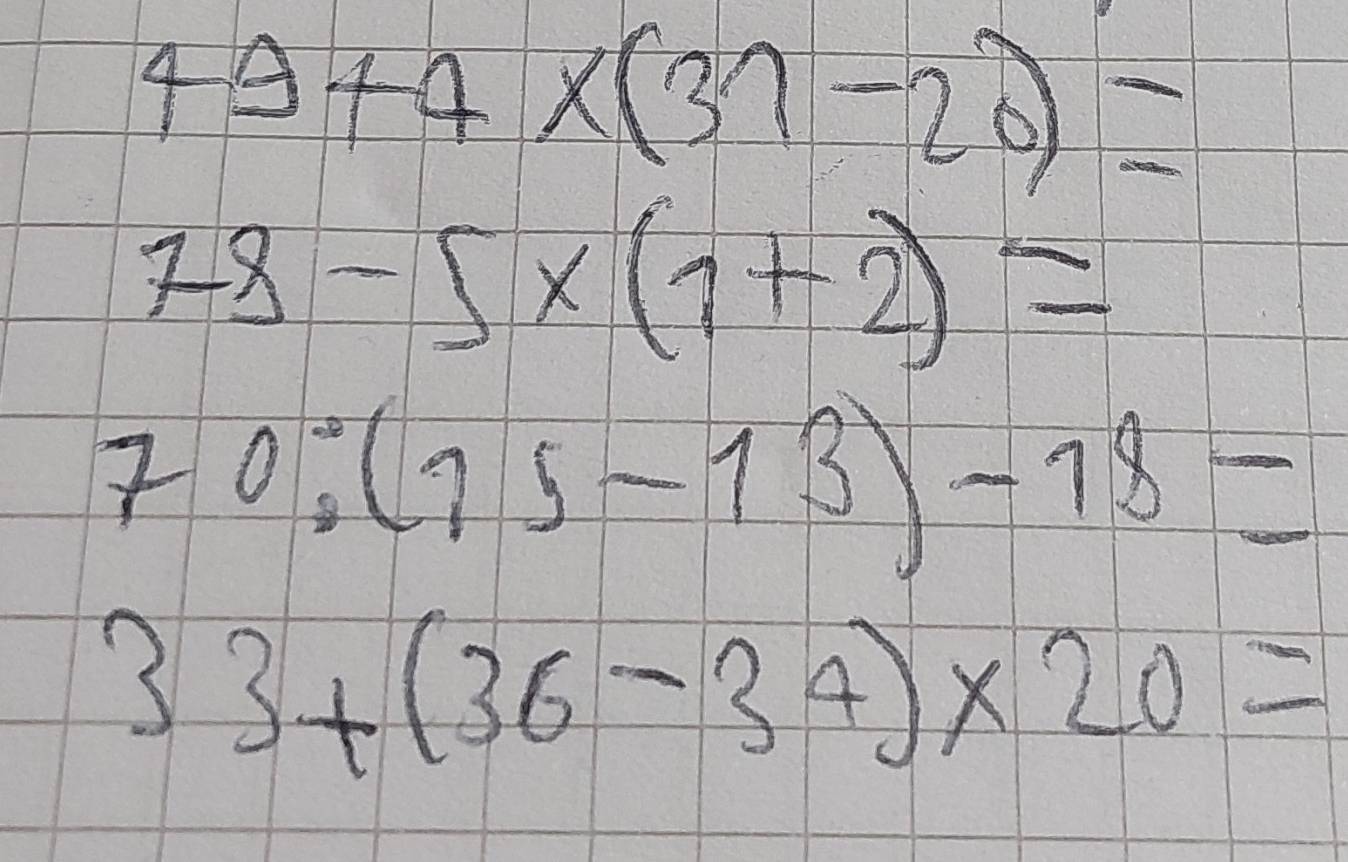 49+4×(31-20)=
78-5×(1+2)=
70:(15-13)-18=
33+(36-34)×20=